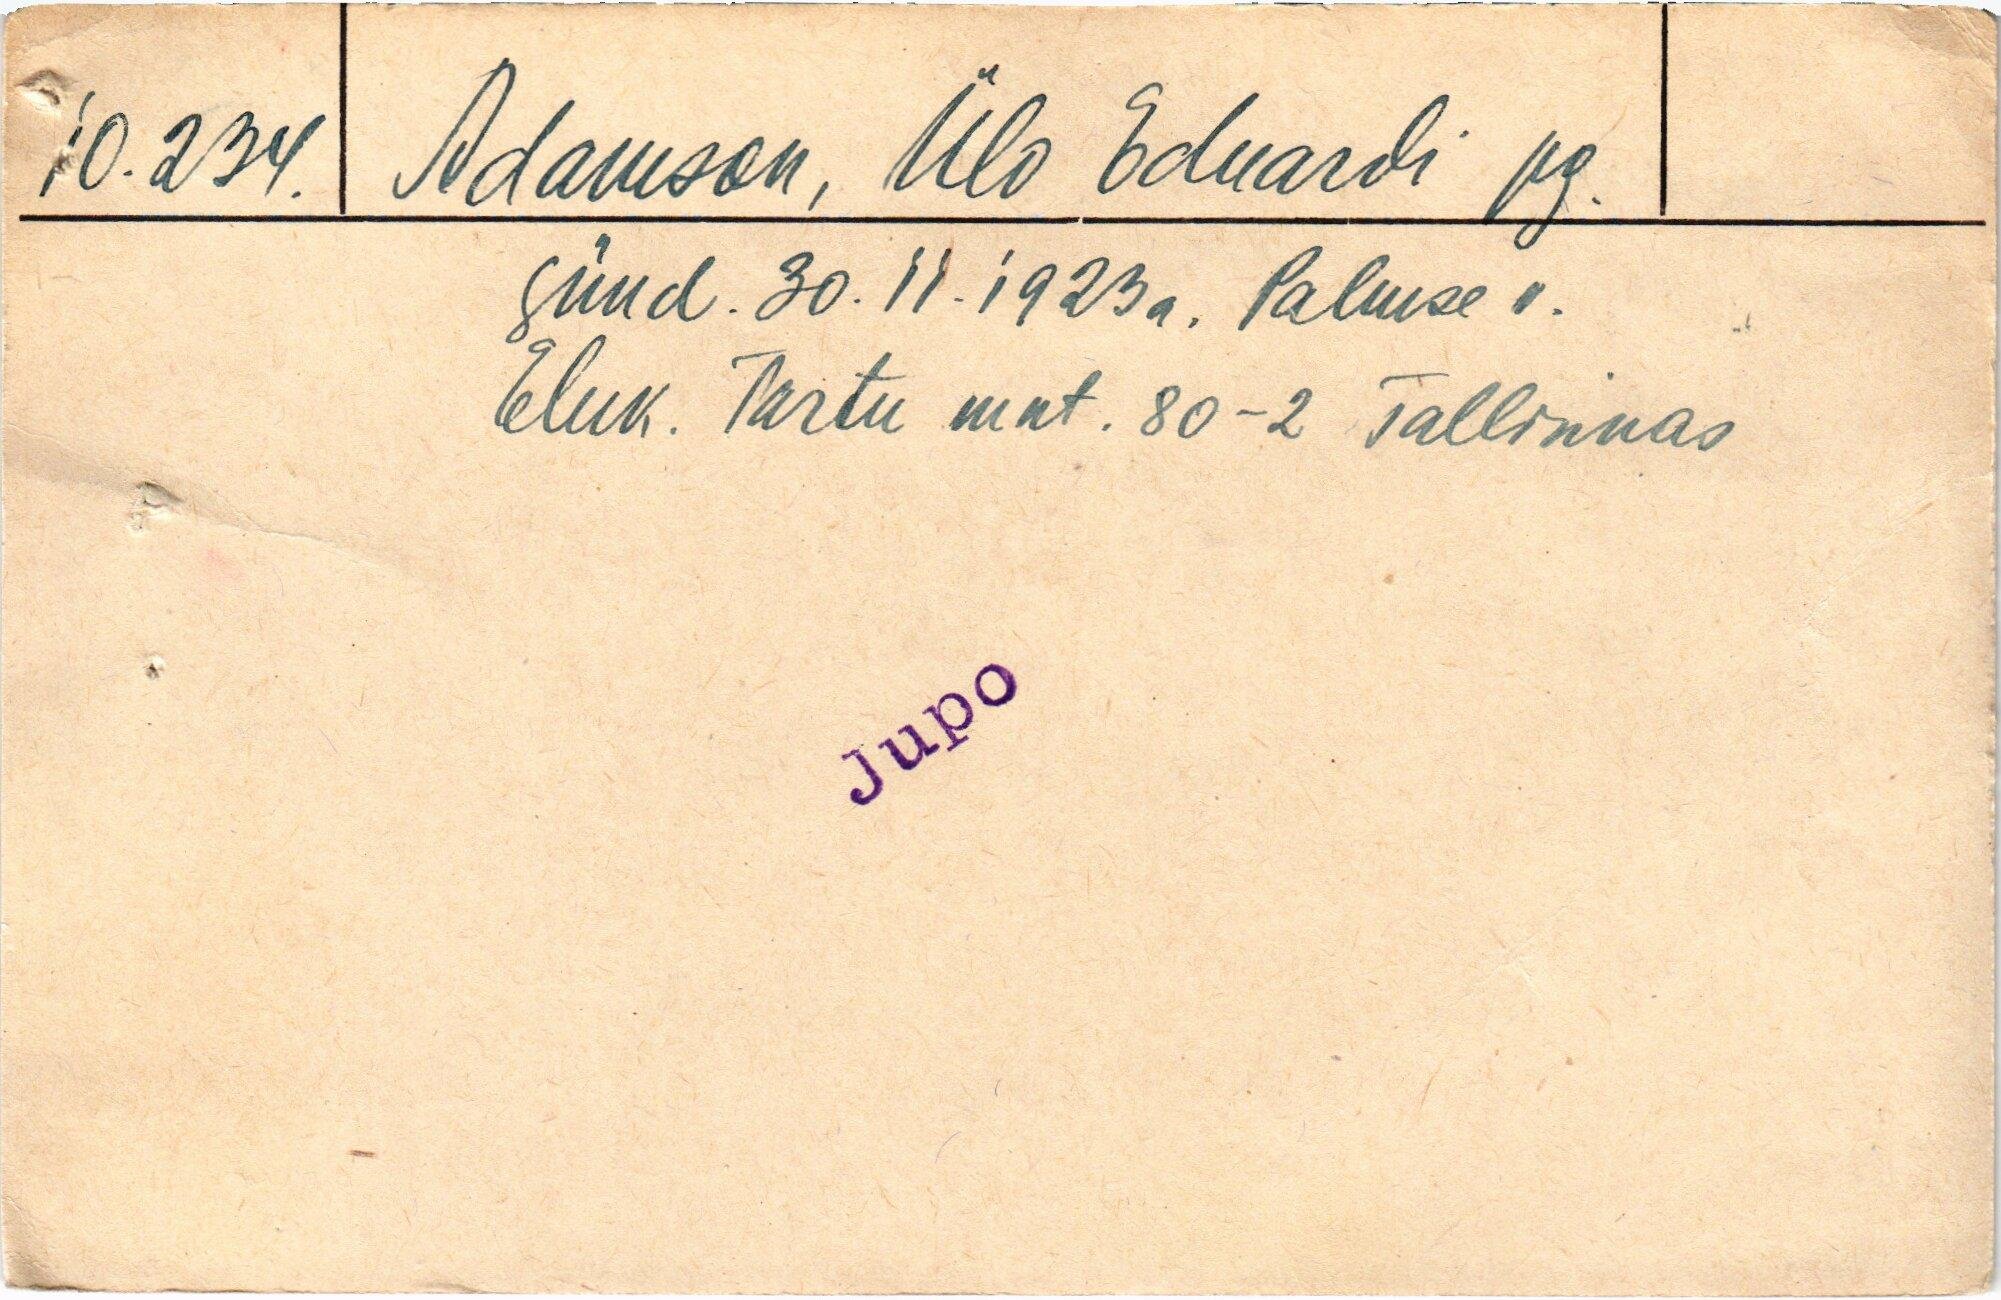 10.234. Adamson, Ülo Eduardi pg.
sünd. 30.11.1923a. Palmse v.
Eluk. Tartu mnt. 80-2 Tallinnas
Jupo